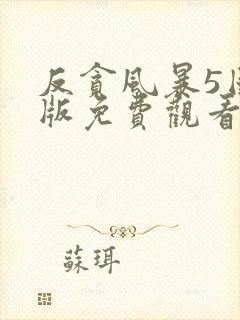 反貪風暴5
版免費觀看
蘇珥